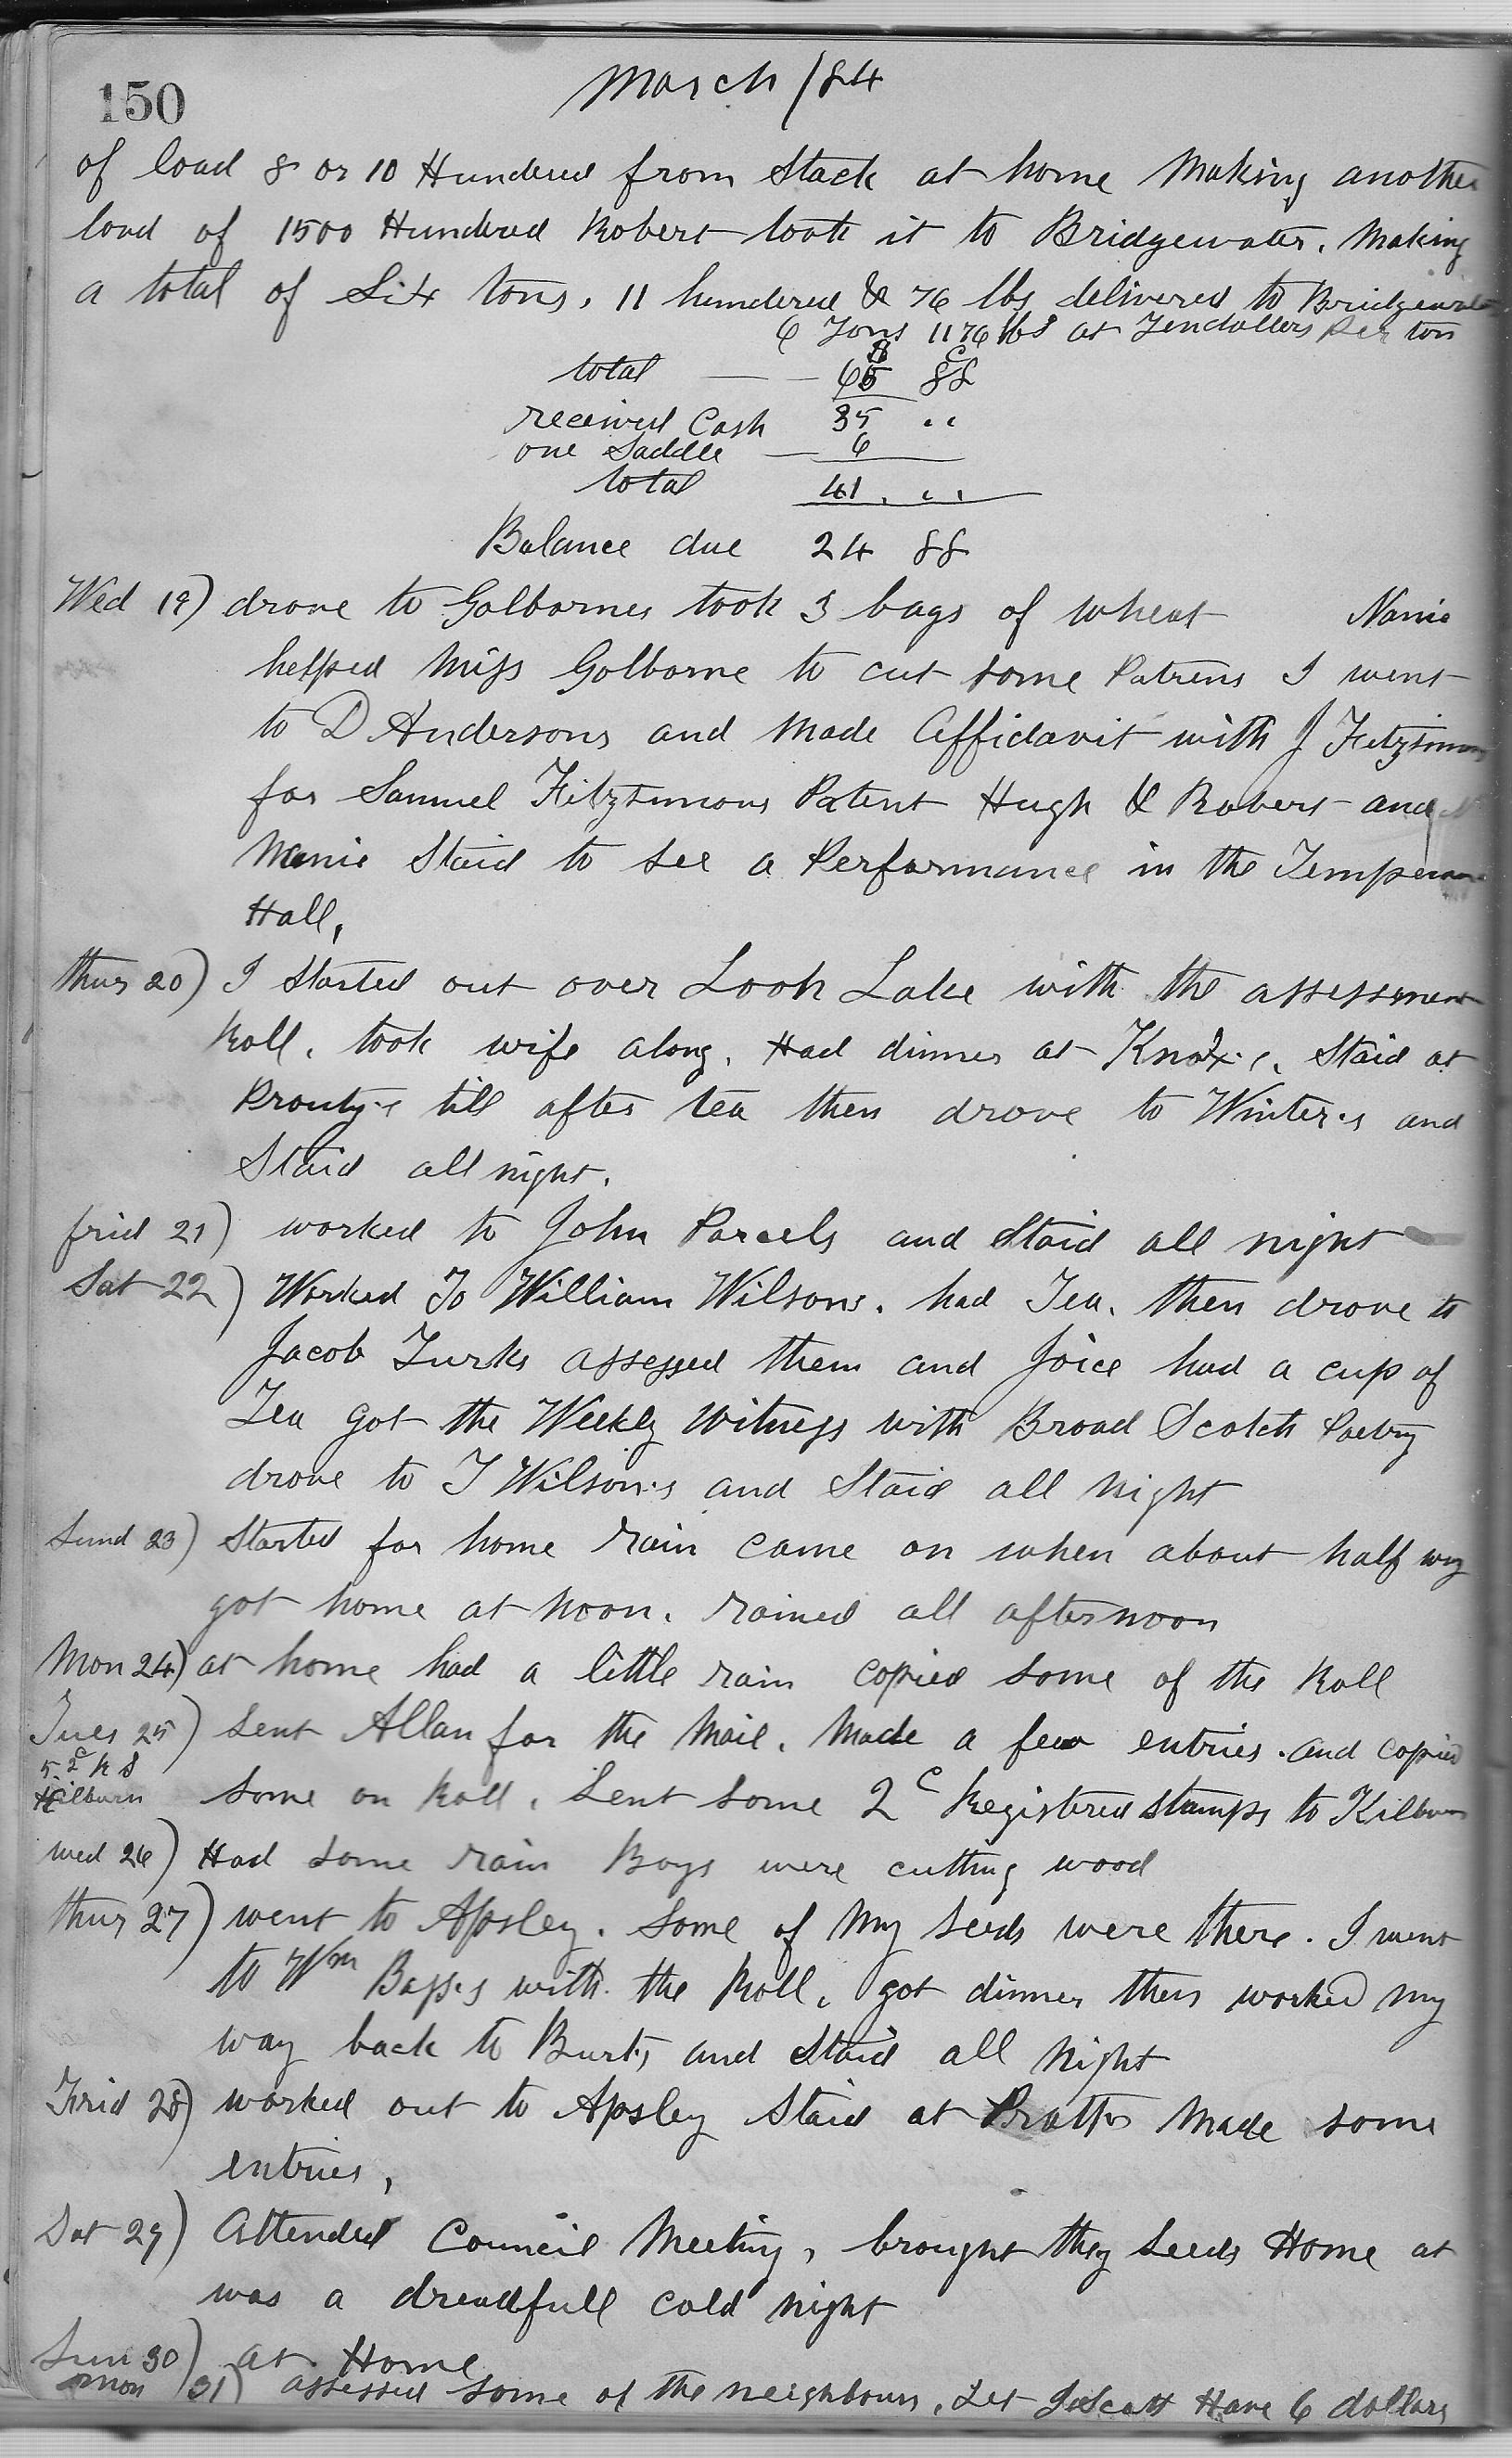 150
March /84
of load 8 or 10 Hundred from Stack at home Making another
load of 1500 Hundred Robert took it to Bridgewater. Making
a total of Six tons, 11 hundered & 76 lbs delivered to Bridgewater
6 Tons 1176 lbs at Tendollers Per ton
$ c
total — — 65 88
received Cash 35 "
one Saddle — 6
total 41. "
Balance due 24 88
Wed 19) drove to Golbornes took 3 bags of wheat Nanie
helped Miss Golborne to cut some Patrens I went
to D Andersons and Made Affidavit with J Fitzsimons
for Samuel Fitzsimons Patent Hugh & Robert and
Nanie Staid to see a Performance in the Temperance
Hall,
thur 20) I Started out over Loon Lake with the assessment
Roll. took wife along. Had dinner at Knox's. Staid at
Prouty's till after tea then drove to Winter's and
Staid all night.
frid 21) worked to John Parcels and Staid all night
Sat 22) Worked To William Wilsons. had Tea. then drove to
Jacob Turks assessed them and Joice had a cup of
Tea got the Weekly Witness with Broad Scotch Poetry
drove to T Wilson's and Staid all night
Sund 23) Started for home rain came on when about half way
got home at noon. rained all afternoon
Mon 24) at home had a little rain copied some of the Roll
Tues 25) Sent Allan for the Mail. Made a few entries. and copied
5. 2c R S
Kilburn some on Roll. Sent some 2c Registered stamps to Kilburn
wed 26) Had some rain Boys were cutting wood
thur 27) went to Apsley. Some of My Seeds were there. I went
to Wm Bass's with the Roll. got dinner then worked my
way back to Burt's and Staid all night
Frid 28) worked out to Apsley Staid at Pratts Made some
entries,
Sat 29) Attended Council Meeting, brought they Seeds Home at
was a dreadfull cold night
Sun 30) at Home
mon 31) assessed some of the neighbours. Let Scott Have 6 dollars